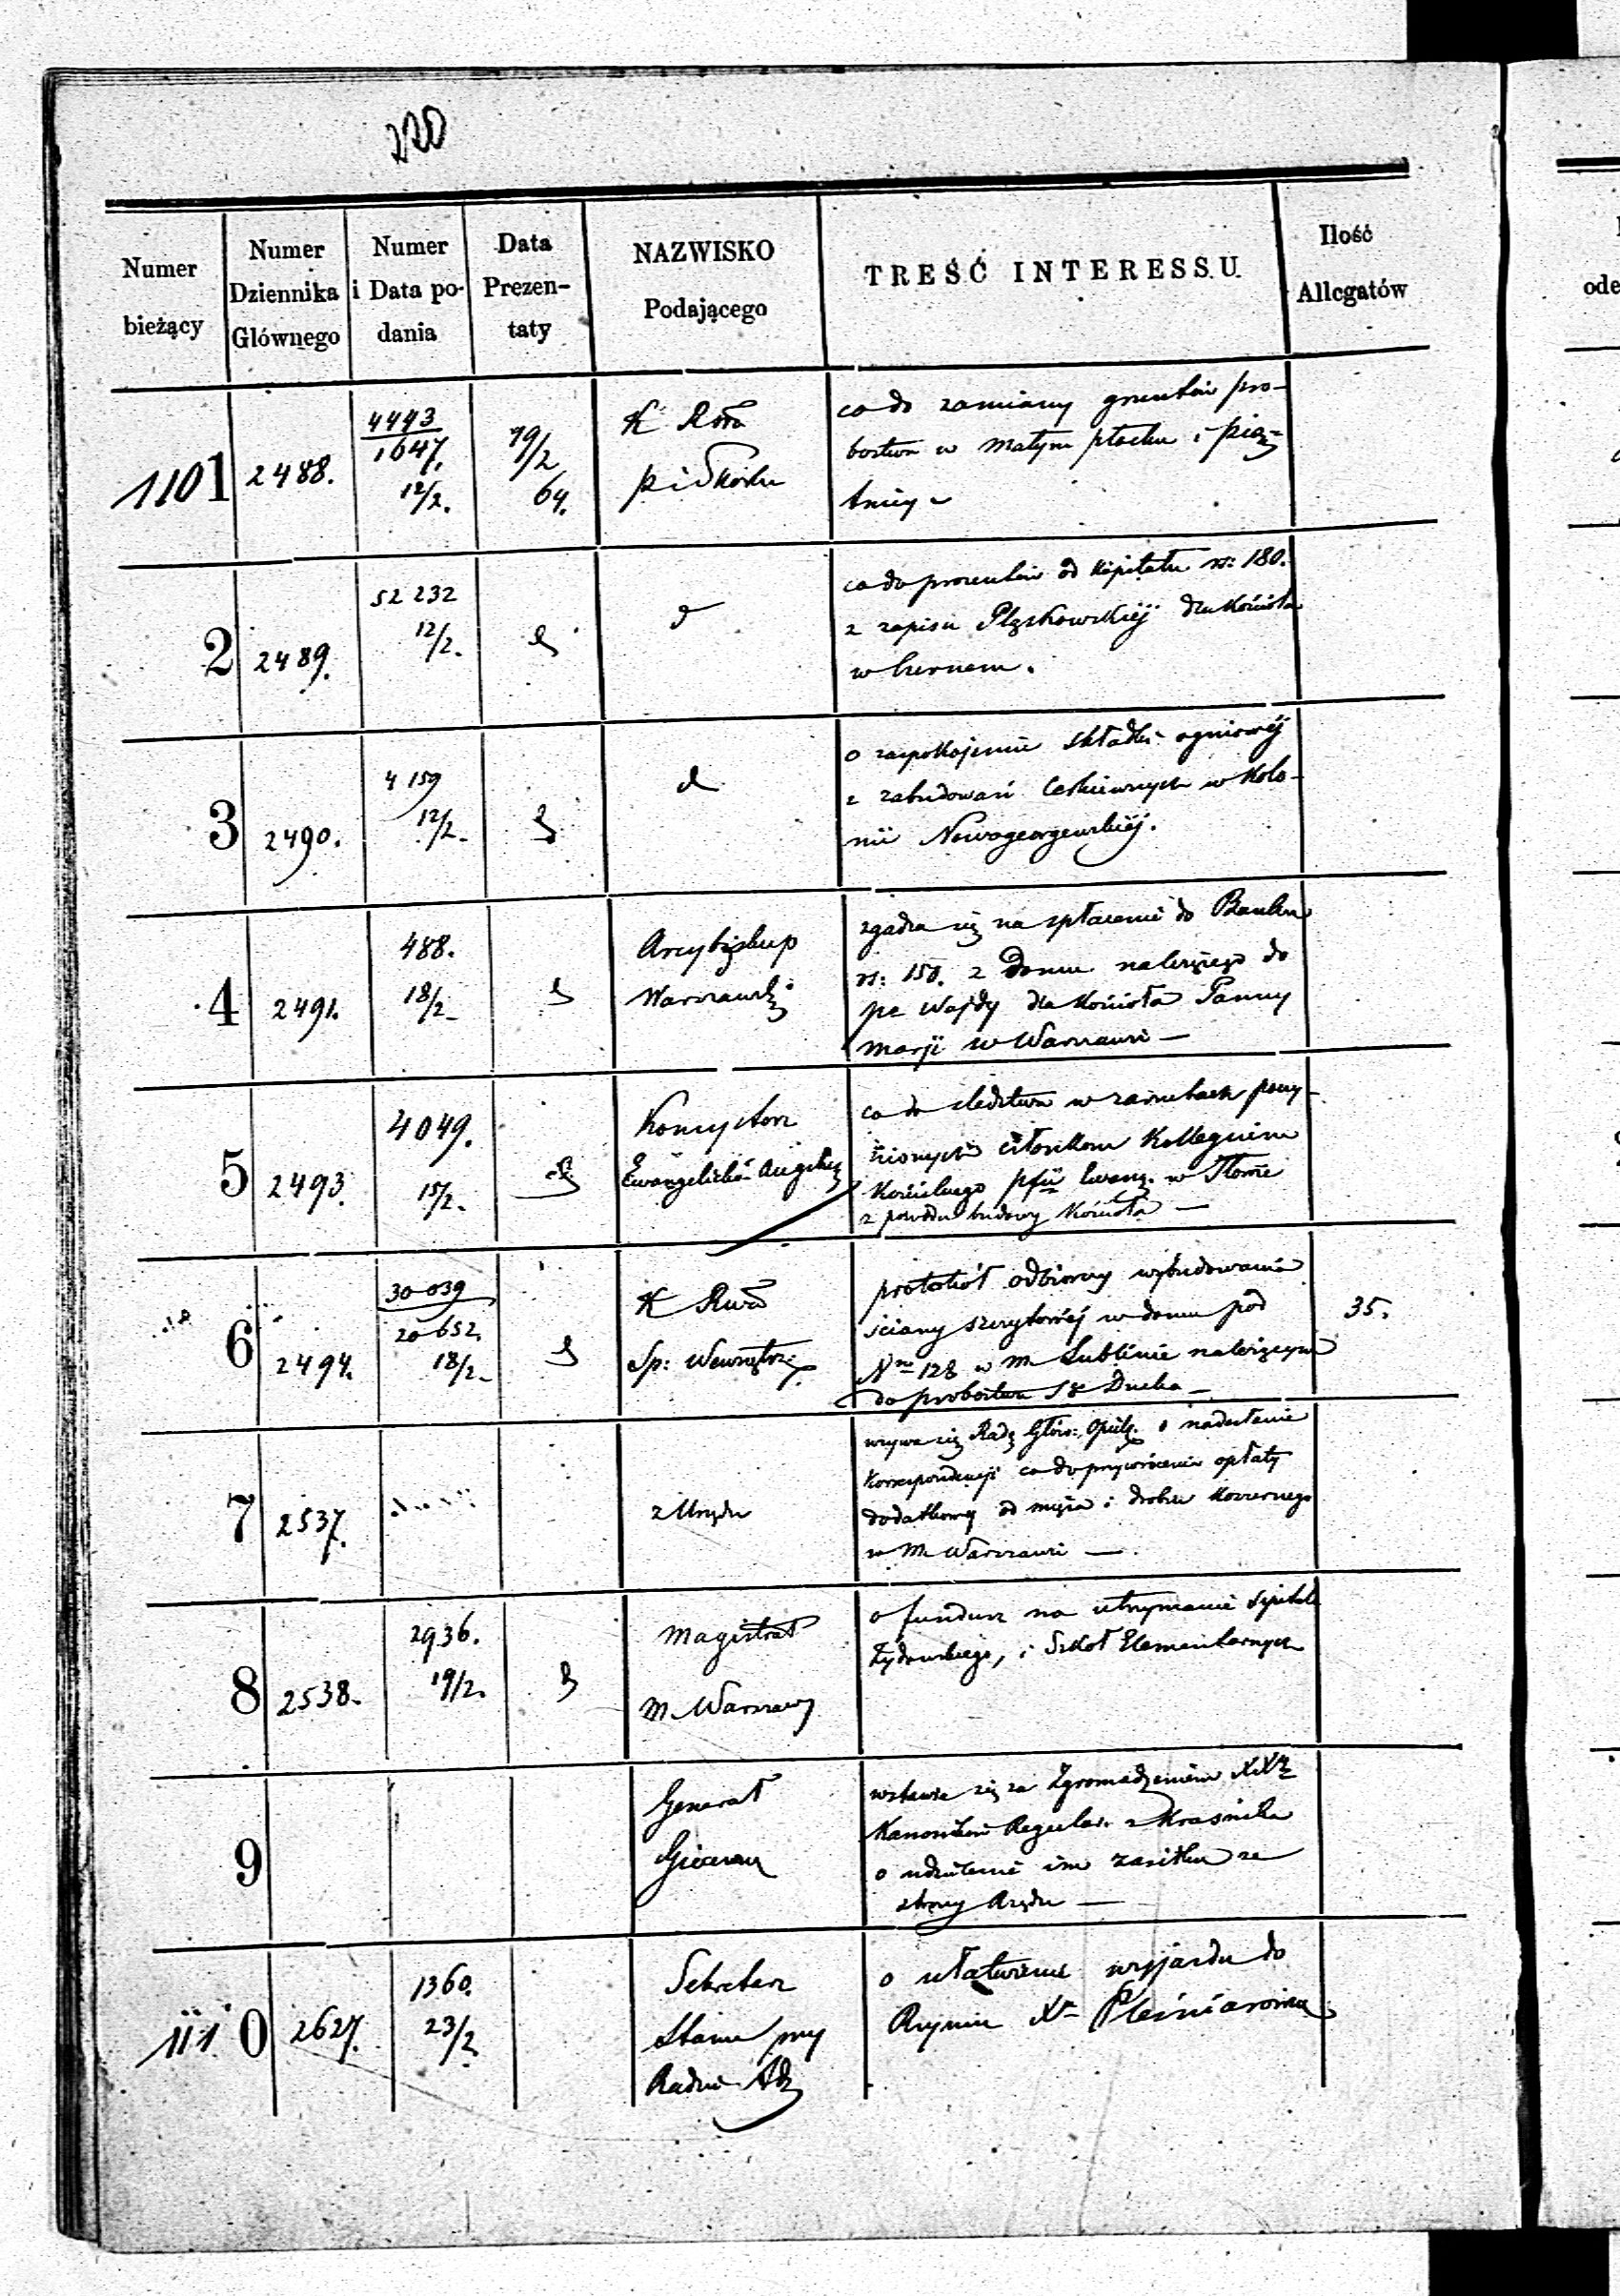 220
Numer bieżący
Numer Dziennika Głównego
Numer i Data podania
Data Prezentaty
NAZWISKO Podającego
TREŚĆ INTERESSU.
Ilość Allegatów
1101
2488.
4493
1647.
12/2.
19/2
64.
K
co do zamiany gruntów pro-
bostwa w Małym Płocku i Pią-
tnicy
2
2489.
52 232
12/2.
co do procentów od kapitału rs: 180.
z zapisu dla Kościoła
w
3
2490.
4 159
12/2.
o zaspokojenie składki ogniowéj
z zabudowań Cerkiewnych w Kolo-
nii Nowogeorgewskiéj.
4
2491.
488.
18/2
Arcybiskup
Warszawski
zgadza się na spłacenie do Banku
rs: 150. z Domu należącego do
pe Wajdy dla Kościoła Panny
Marji w Warszawie —
5
2493.
4049.
15/2.
Konsystorz
Ewangelicko-Augsbug
co do śledztwa w zarzutach poczy-
nionych członkom Kollegium
Kościelnego pfii Ewang. w
z powodu budowy Kościoła —
6
2494.
30 039
20 652.
18/2
K
Sp: Wewnętrz:
protokół odbiorczy wybudowania
ściany szczytowéj w domu pod
Nm 128 w M Lublinie należącym
do probostwa Sgo Ducha —
35.
7
2537.
z Urzędu
wzywa się Radę Głów: Opiek. o nadesłanie
Korrespondencji co do przywrócenia opłaty
dodatkowej od mięsa i drobiu Koszernego
w M Warszawie —
8
2538.
2936.
19/2.
Magistrat
M. Warszawy
o fundusz na utrzymanie Szpitala
Żydowskiego, i Szkół Elementarnych
9
Generał
wstawia się za Zgromadzeniem XX
Kanoników Regular. z Kraśnika
o udzielenie im zasiłku ze
strony Rządu —
1110
2627.
1360.
23/2
Sekretarz
Stanu przy
Radzie Adz
o ułatwienie wyjazdu do
Rzymu Xa